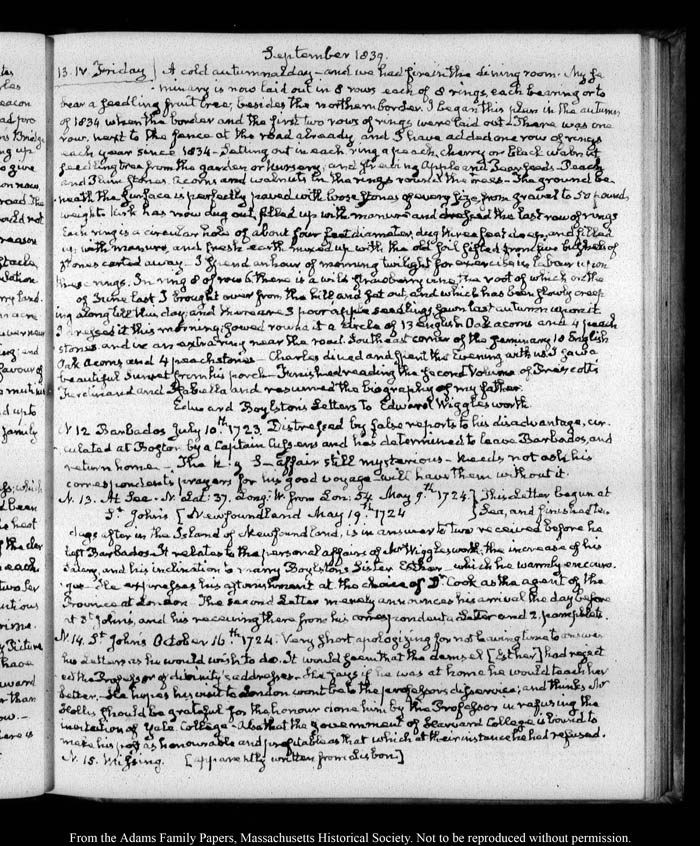 September 1839.
13. IV. Friday | A cold autumnal day – and we had fire in the dining room. My Se
minary is now laid out in 8 rows each of 8 rings, each bearing or to
bear a seedling fruit tree, besides the northern border. I began this plan in the autumn
of 1834 when the border and the first two rows of rings were laid out – There was one
row, next to the fence at the road already, and I have added one row of rings
each year since 1834 – Setting out in each ring a peach, cherry or black walnut
seedling tree from the garden or nursery, and strewing Apple and Pear seeds. Peach
and Plum stones. acorns and walnuts in the rings round the trees – The ground be
neath the surface is perfectly paved with loose stones of every size, from gravel to 50 pounds
weight. Kirk has now dug out, filled up with manure and dressed the last row of rings
Each ring is a circular hole of about four feet diameter, dug three feet deep, and filled
up with manure, and fresh earth mixed up with the old soil sifted from five bushels of
stones carted away – I spend an hour of morning twilight for exercise in labour upon
these rings. In ring 8 of row 6 there is a wild strawberry vine, the root of which on the
of June last I brought over from the hill and set out, and which has been slowly creep
ing along till this day, and there are 3 poor apple seedlings, sown last autumn upon it
I dressed it this morning, sowed round it a circle of 13 English Oak acorns and 4 peach
stones and in an extra ring near the road. Southeast corner of the Seminary 10 English
Oak acorns and 4 peach stones – Charles dined and spent the Evening with us I saw a
beautiful Sunset from his porch – Finished reading the second Volume of Prescott's
Ferdinand and Isabella and resumed the biography of my father.
Edward Boylston's Letters to Edward Wigglesworth.
N. 12 Barbados July 10.th 1723. Distressed by false reports to his disadvantage, cir-
culated at Boston by a Captain and has determined to leave Barbados, and
return home – The K. g S– affair still mysterious – Needs not ask his
correspondents prayers for his good voyage – will have them without it.
N. 13. At Sea – N. Lat: 37. Long: W. from Lon: 54. May 9th 1724. } This Letter begun at
St. Johns [Newfoundland May 19.th 1724 } Sea, and finished ten
days after in the Island of Newfoundland, is in answer to two received before he
left Barbados. It relates to the personal affairs of Mr Wigglesworth, the increase of his
salary, and his inclination to marry Boylston's Sister Esther – which he warmly encoura-
ges – He expresses his astonishment at the choice of Dr Cook as the agent of the
Province at London – The second Letter merely announces his arrival the day before
at St Johns, and his receiving there from his correspondent a Letter and 2. pamphlets.
N. 14. St Johns October 16.th 1724. Very short apologizing for not having time to answer
his Letters as he would wish to do. It would seem that the damsel [Esther] had reject
ed the Professor of divinity's addresses. He says if he was at home he would teach her
better. He hopes his visit to London wont be to the professor's disservice; and thinks Mr
Hollis should be grateful for the honour done him by the Professor in refusing the
invitation of Yale College – Also that the government of Harvard College is bound to
make his post as honourable and profitable as that which at their instance he had refused.
N. 15. Missing. [apparently written from Lisbon]
From the Adams Family Papers, Massachusetts Historical Society. Not to be reproduced without permission.